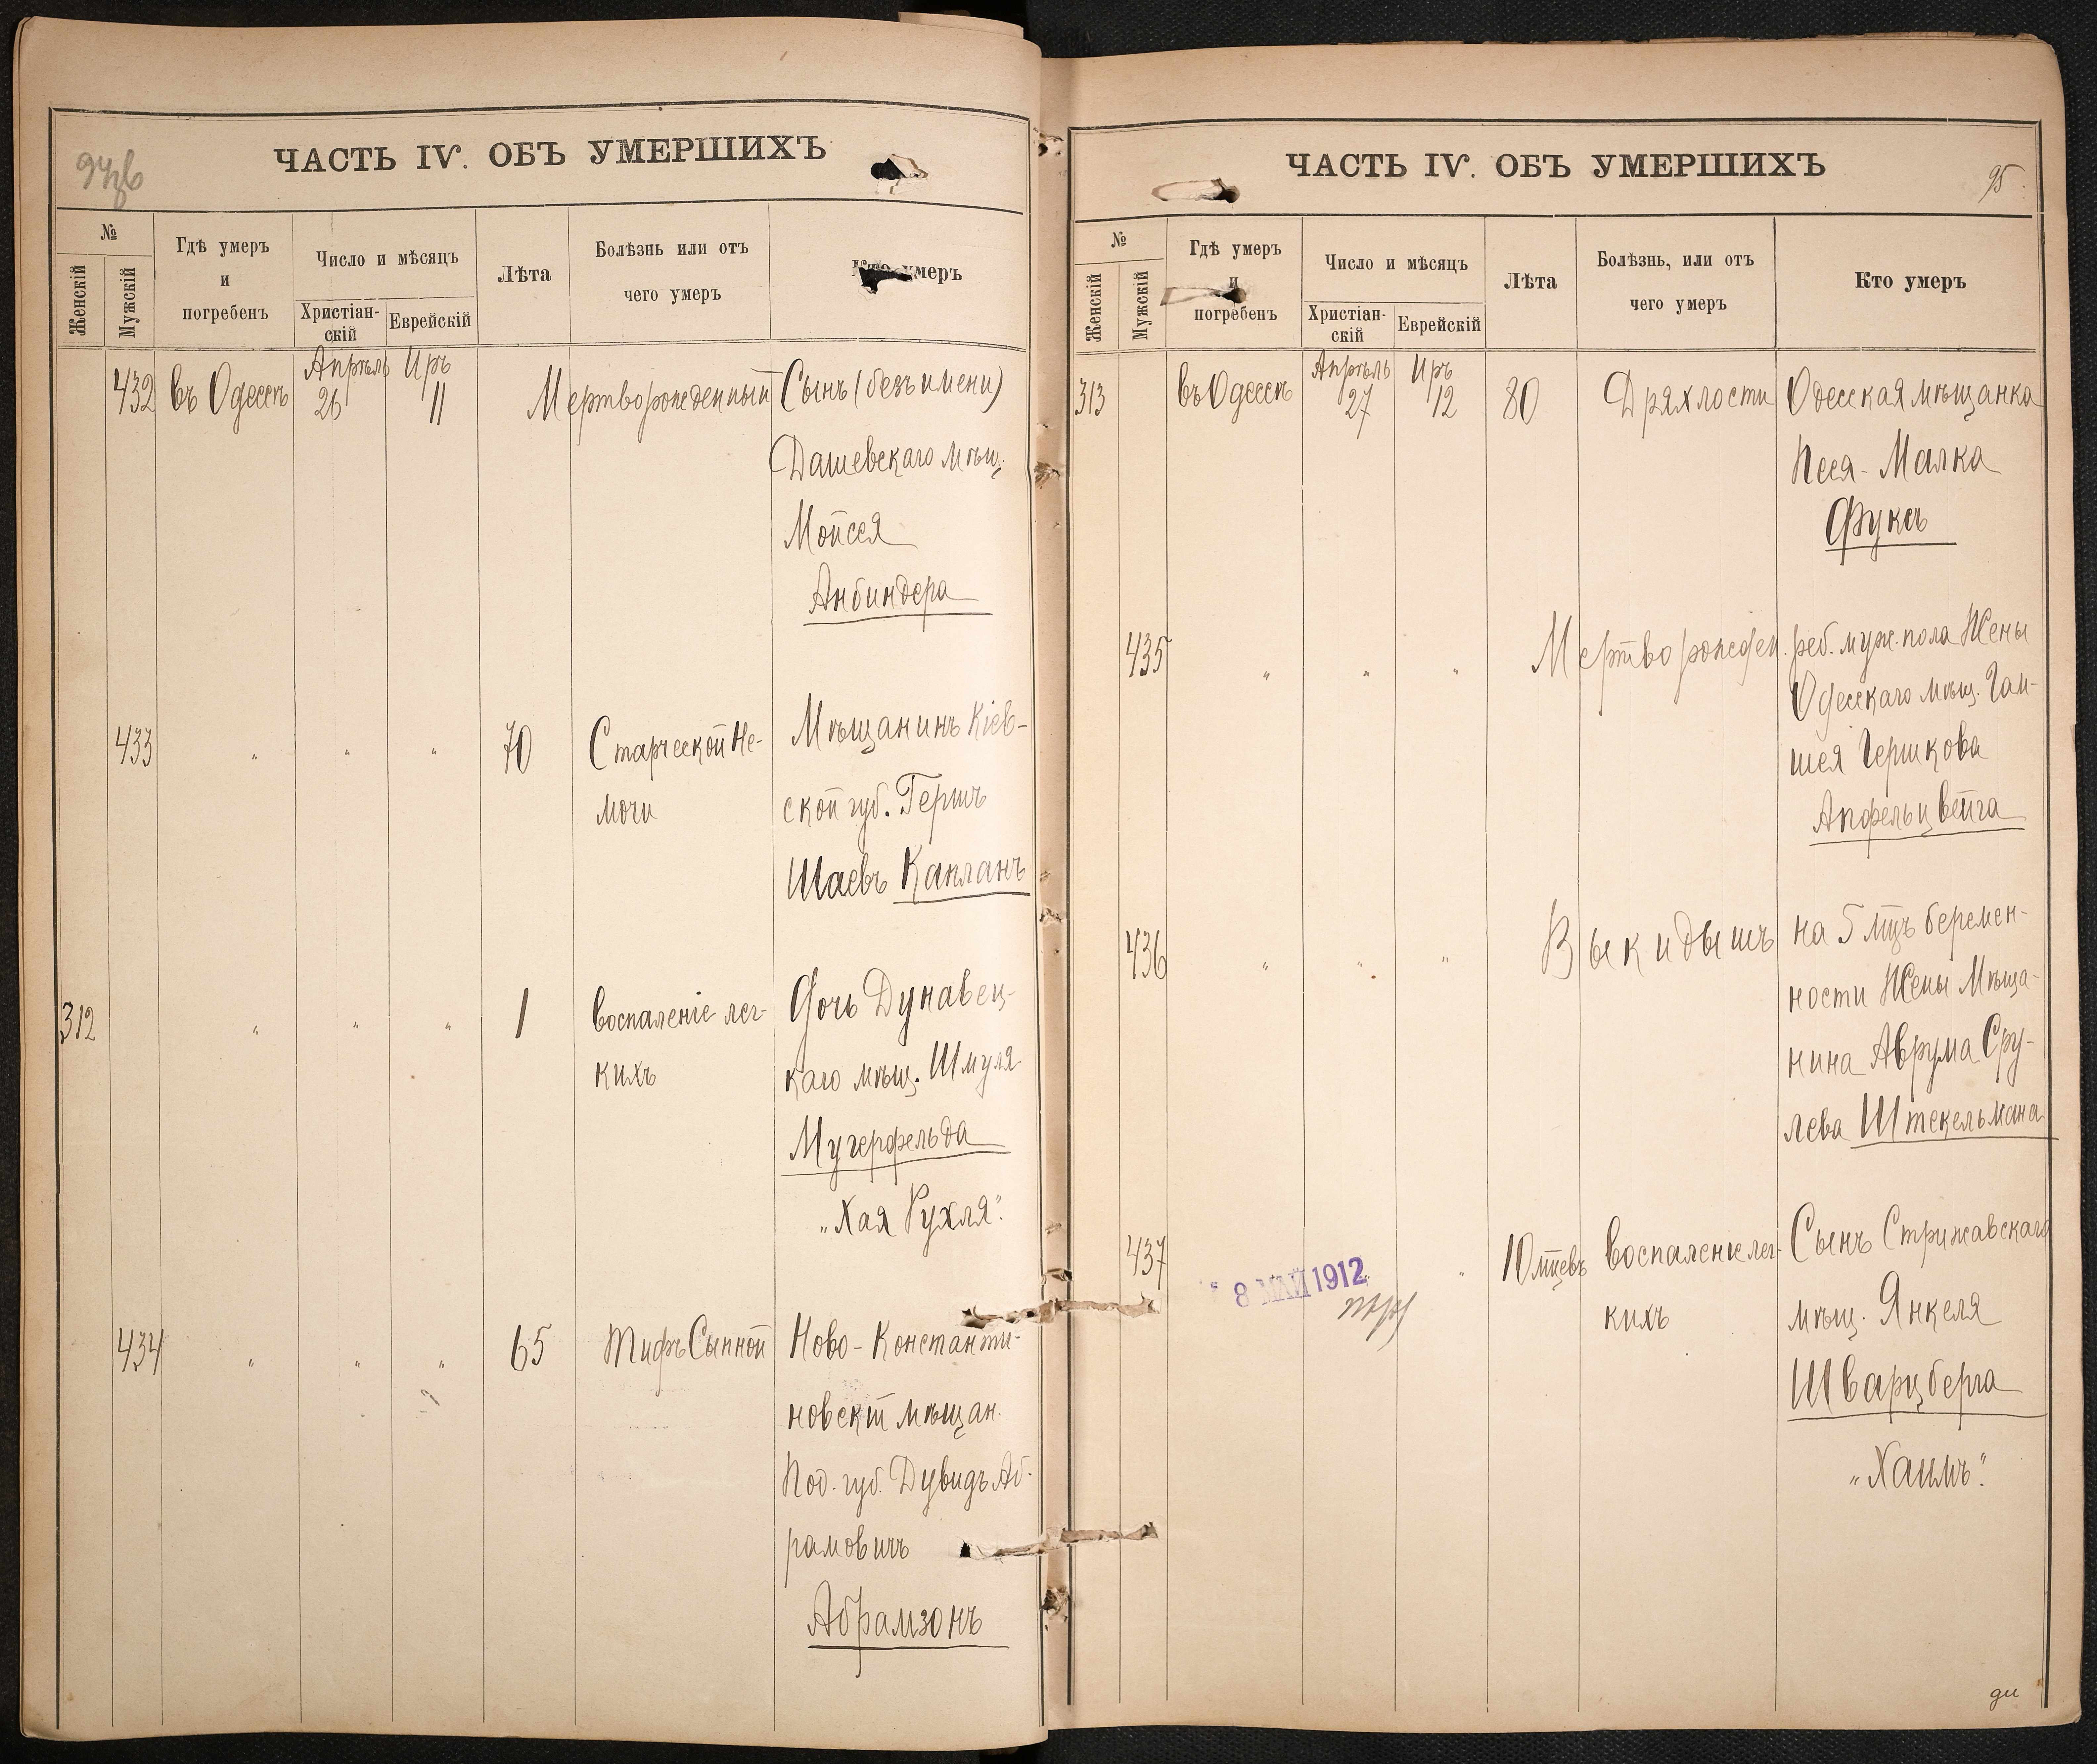 ЧАСТЬ IV. ОБЪ УМЕРШИХЪ
№
Женскій
Мужскій
Гдѣ умеръ
и
погребенъ
Число и мѣсяцъ
Христіан-
скій
Еврейскій
Лѣта
Болѣзнь или отъ
чего умеръ
Кто умеръ
432 въ Одессѣ Апрѣль 26 Иръ 11 Мертворожденный Сынъ (безъ имени)
Дашевскаго мѣщ.
Мойсея
Анбиндера
433 " " " 70 Старческой Не-
мочи
Мѣщанинъ Кіев-
ской губ. Гершъ
Шаевъ Капланъ
312 " " " 1 воспаленіе лег-
кихъ
Дочь Дунавец-
каго мѣщ. Шмуля
Мугерфельда
"Хая Рухля".
434 " " " 65 Тифъ Сыпной
Ново-Константи-
новскій мѣщан.
Под. губ. Дувидъ Аб-
рамовичъ
Абрамзонъ
ЧАСТЬ IV. ОБЪ УМЕРШИХЪ
95.
№
Женскій
Мужскій
Гдѣ умеръ
и
погребенъ
Число и мѣсяцъ
Христіан-
скій
Еврейскій
Лѣта
Болѣзнь, или отъ
чего умеръ
Кто умеръ
313 въ Одессѣ Апрѣль 27 Иръ 12 80 Дряхлости Одесская мѣщанка
Песя-Малка
Фуксъ
435 " " " Мертворожден. реб. муж. пола Жены
Одесскаго мѣщ. Гам-
шея Гершкова
Апфельцвейга
436 " " " Выкидышъ на 5 мцъ беремен-
ности Жены Мѣща-
нина Аврума Сру-
лева Штекельмана
437 " 10 мцевъ воспаленіе лег-
кихъ
Сынъ Стрижавскаго
мѣщ. Янкеля
Шварцберга
"Хаимъ".
8 МАЙ 1912